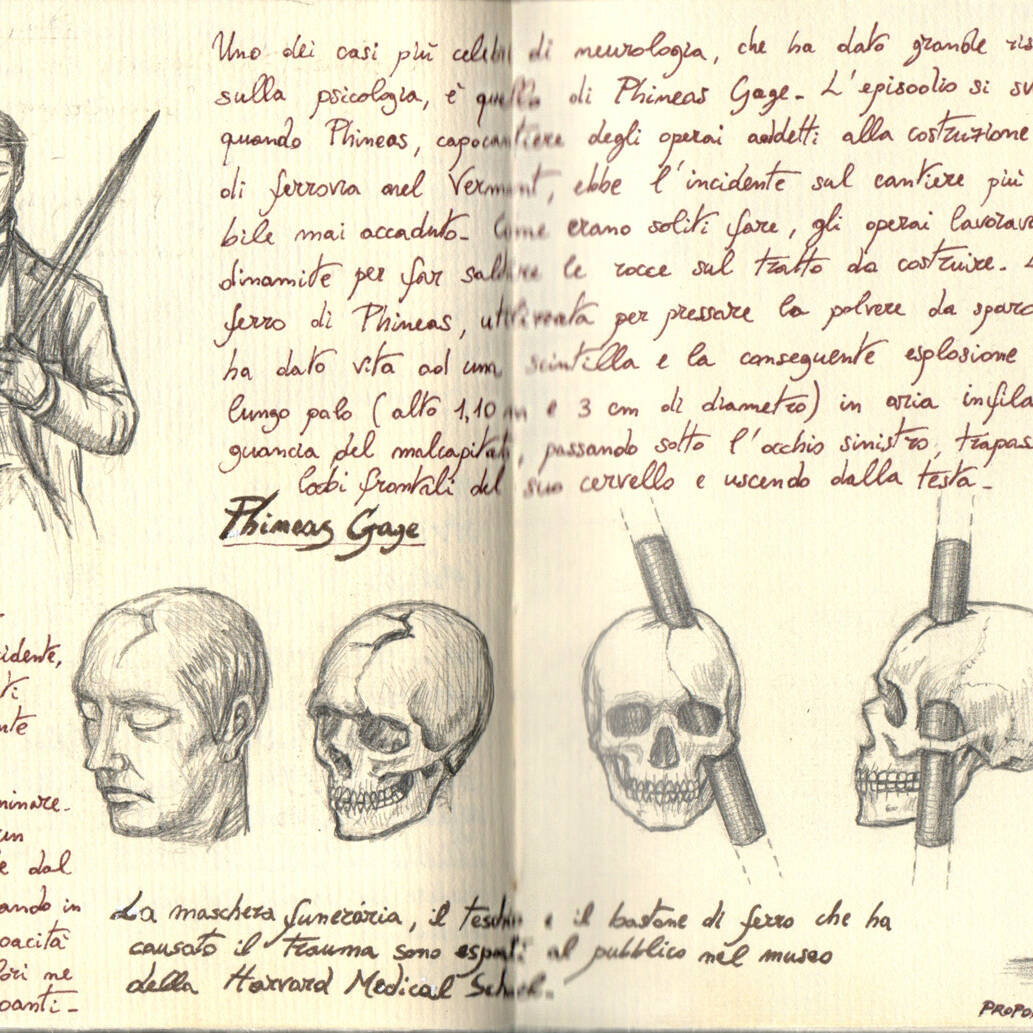 Uno dei casi più celebri di neurologia, che ha dato grande ris
sulla psicologia, è quello di Phineas Gage. L'episodio si sv
quando Phineas, capocantiere degli operai addetti alla costruzione
di ferrovia nel Vermont, ebbe l'incidente sul cantiere più
bile mai accaduto. Come erano soliti fare, gli operai lavorav
dinamite per far saltare le rocce sul tratto da costruire.
ferro di Phineas, utilizzata per pressare la polvere da sparo
ha dato vita ad una scintilla e la conseguente esplosione
lungo palo (alto 1,10 m e 3 cm di diametro) in aria infila
guancia del malcapitato, passando sotto l'occhio sinistro, trapas
lobi frontali del suo cervello e uscendo dalla testa.
Phineas Gage
cidente,
ti
nte
minare.
un
e dal
ando in
pacità
lori ne
panti-
La maschera funeraria, il teschio e il bastone di ferro che ha
causato il trauma sono esposti al pubblico nel museo
della Harvard Medical School.
PROPO